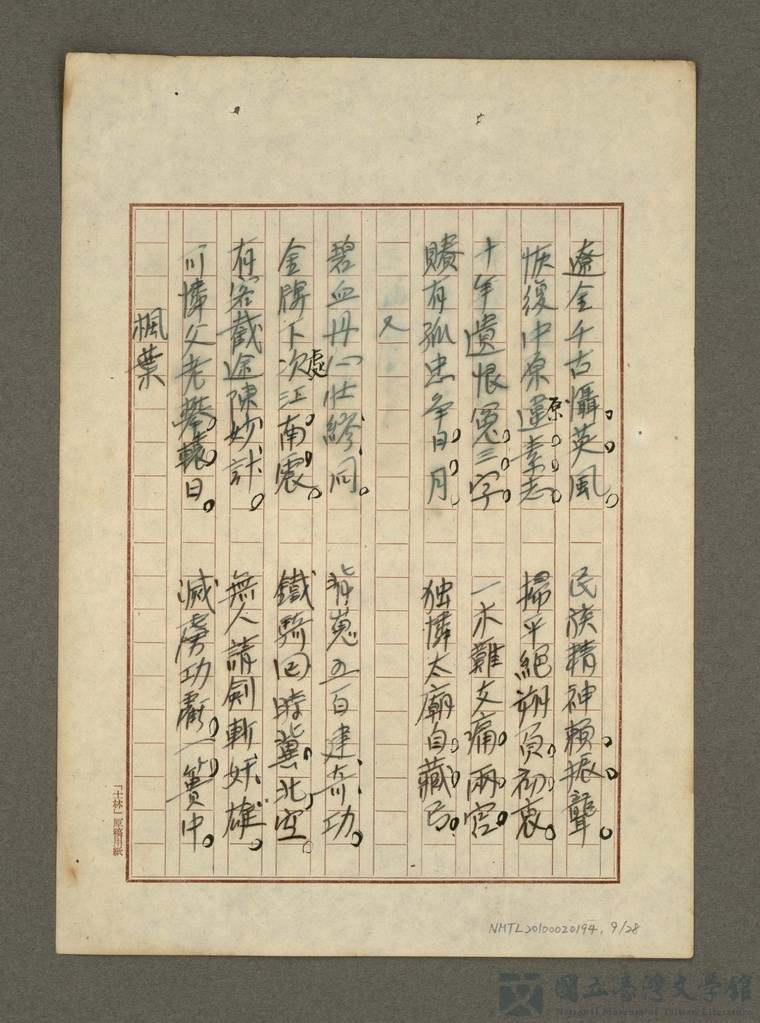 遼金千古懾英風。 民族精神賴振聾。
恢復中原原素志。 掃平絕朔負初衷。
十年遺恨冤三字。 一木難支痛兩宮。
賸有孤忠爭日月。 独憐太廟自藏弓。
又
碧血丹心壯繆同。 背嵬五百建奇功。
金牌下處江南震。 鐵騎回時冀北空。
有客截途陳妙計。 無人請劍斬奸雄。
可憐父老攀轅日。 滅虜功虧一簣中。
楓葉
「士林」原稿用紙
NMTL20100020194, 9/28
國立臺灣文學館
National Museum of Taiwan Literature